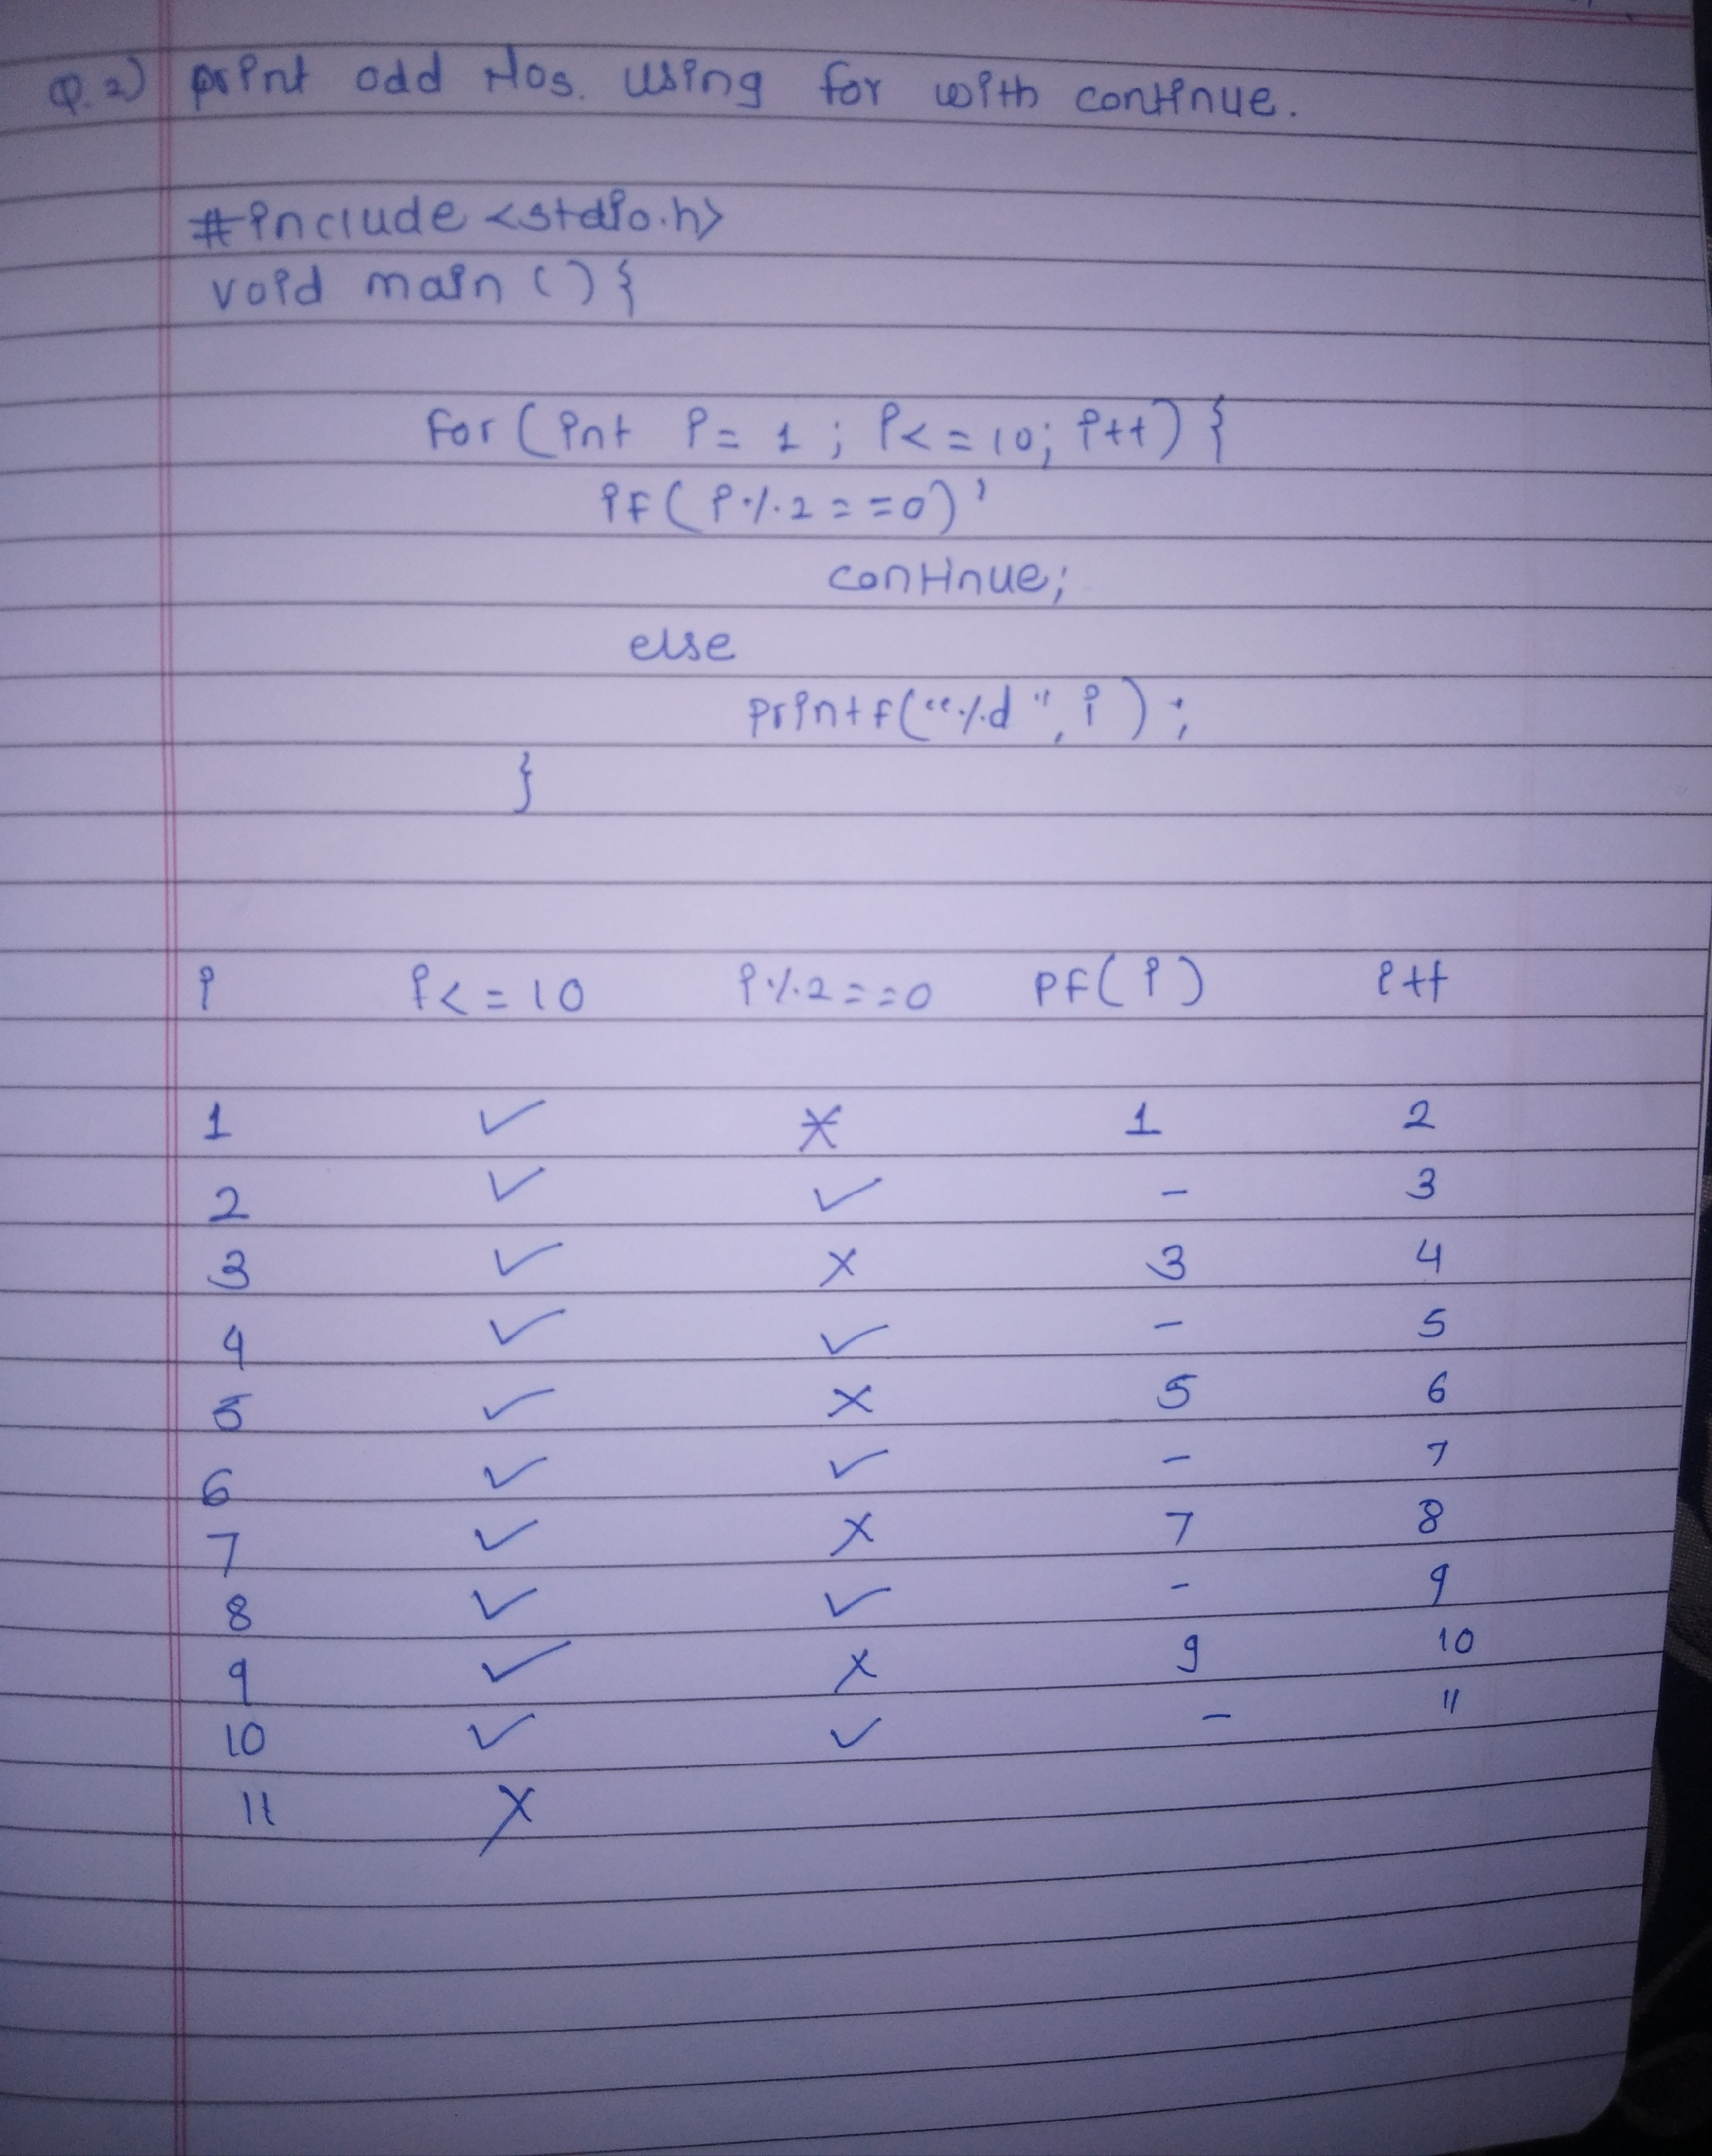 Q.2) print odd Nos. using for with continue.
#include <stdio.h>
void main () {
for (int i = 1 ; i< = 10; i++) {
if ( i % 2 = =0) '
continue;
else
printf(“%d ", i ) ;
}
i i< = 10 i % 2 = =0 PF( i ) i++
1 ✓ × 1 2
2 ✓ ✓ - 3
3 ✓ × 3 4
4 ✓ ✓ - 5
5 ✓ × 5 6
6 ✓ ✓ - 7
7 ✓ × 7 8
8 ✓ ✓ - 9
9 ✓ × 9 10
10 ✓ ✓ - 11
11 ×